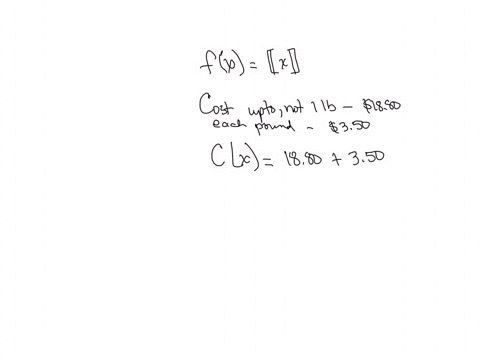 f(x) = ⟦x⟧
Cost upto, not 1 lb – $18.80
each pound – $3.50
C(x) = 18.80 + 3.50